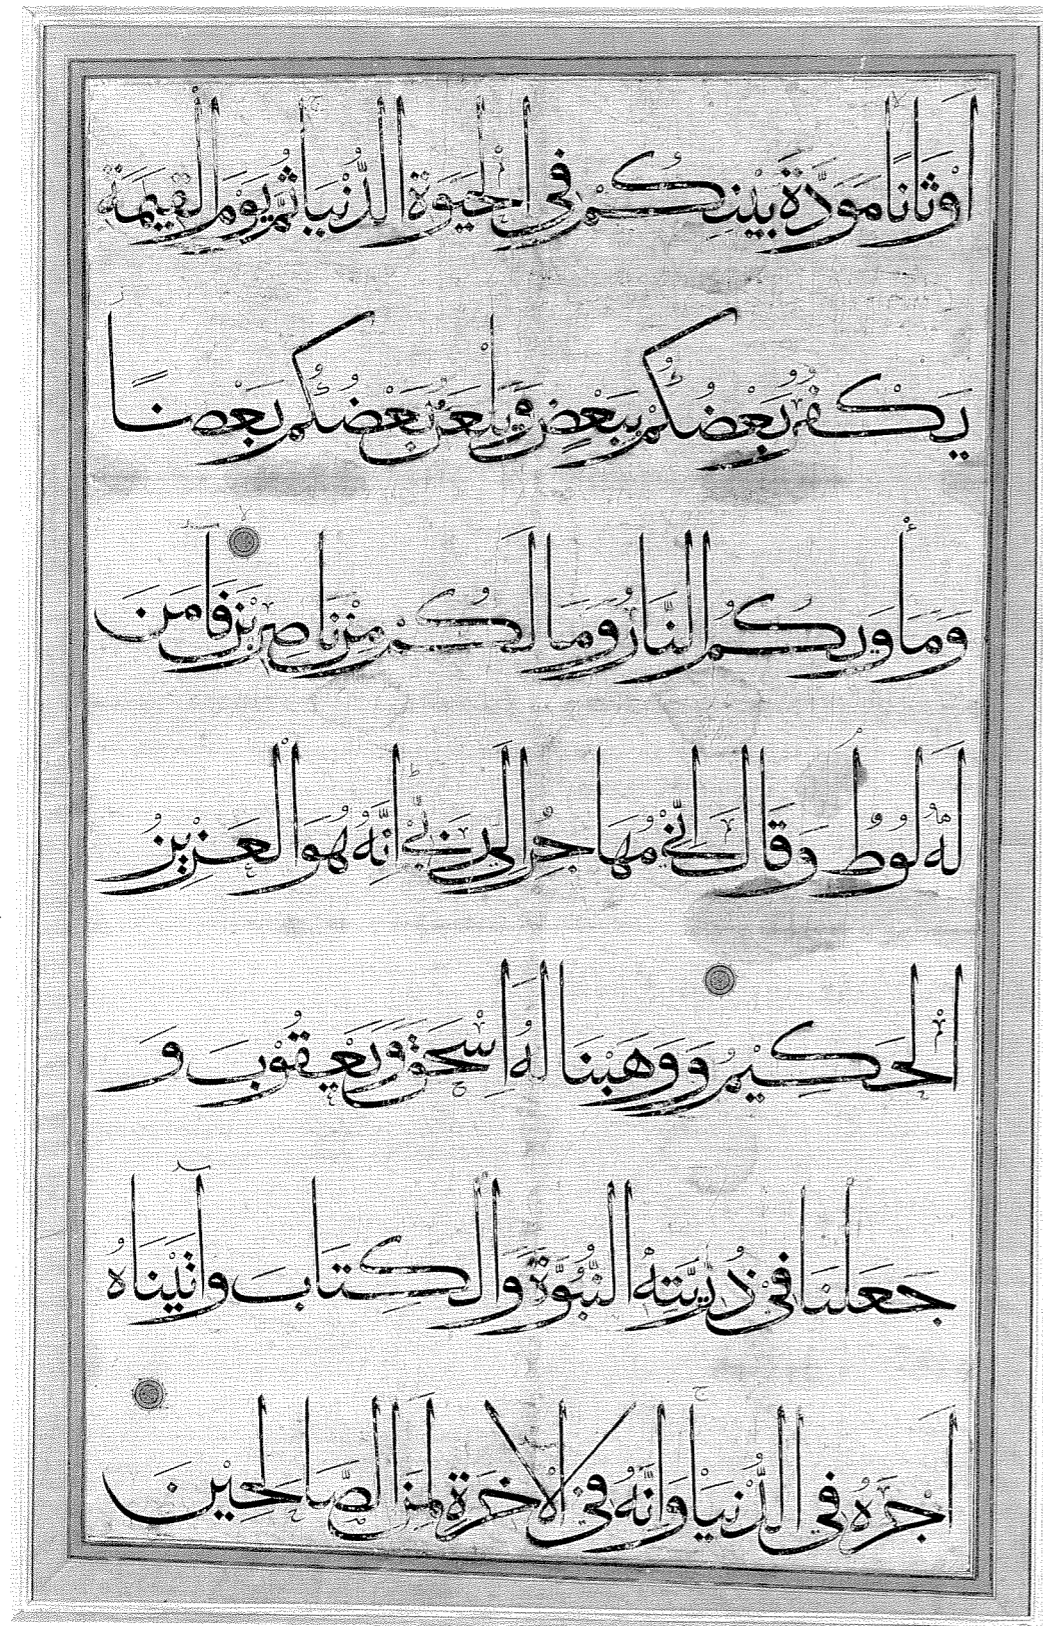 اَوْثَانًا مَوَدَّةَ بَيْنِكُمْ فِى الْحَيٰوةِ الدُّنْيَا ثُمَّ يَوْمَ الْقِيٰمَةِ
يَكْفُرُ بَعْضُكُمْ بِبَعْضٍ وَيَلْعَنُ بَعْضُكُمْ بَعْضًا
وَمَأْوٰيكُمُ النَّارُ وَمَا لَكُمْ مِنْ نَاصِرِيْنَ فَاٰمَنَ
لَهُ لُوْطٌ وَقَالَ اِنِّىْ مُهَاجِرٌ اِلٰى رَبِّىْ اِنَّهُ هُوَ الْعَزِيْزُ
الْحَكِيْمُ وَوَهَبْنَا لَهُ اِسْحٰقَ وَيَعْقُوْبَ وَ
جَعَلْنَا فِىْ ذُرِّيَّتِهِ النُّبُوَّةَ وَالْكِتَابَ وَاٰتَيْنَاهُ
اَجْرَهُ فِى الدُّنْيَا وَاِنَّهُ فِى الْاٰخِرَةِ لَمِنَ الصَّالِحِيْنَ